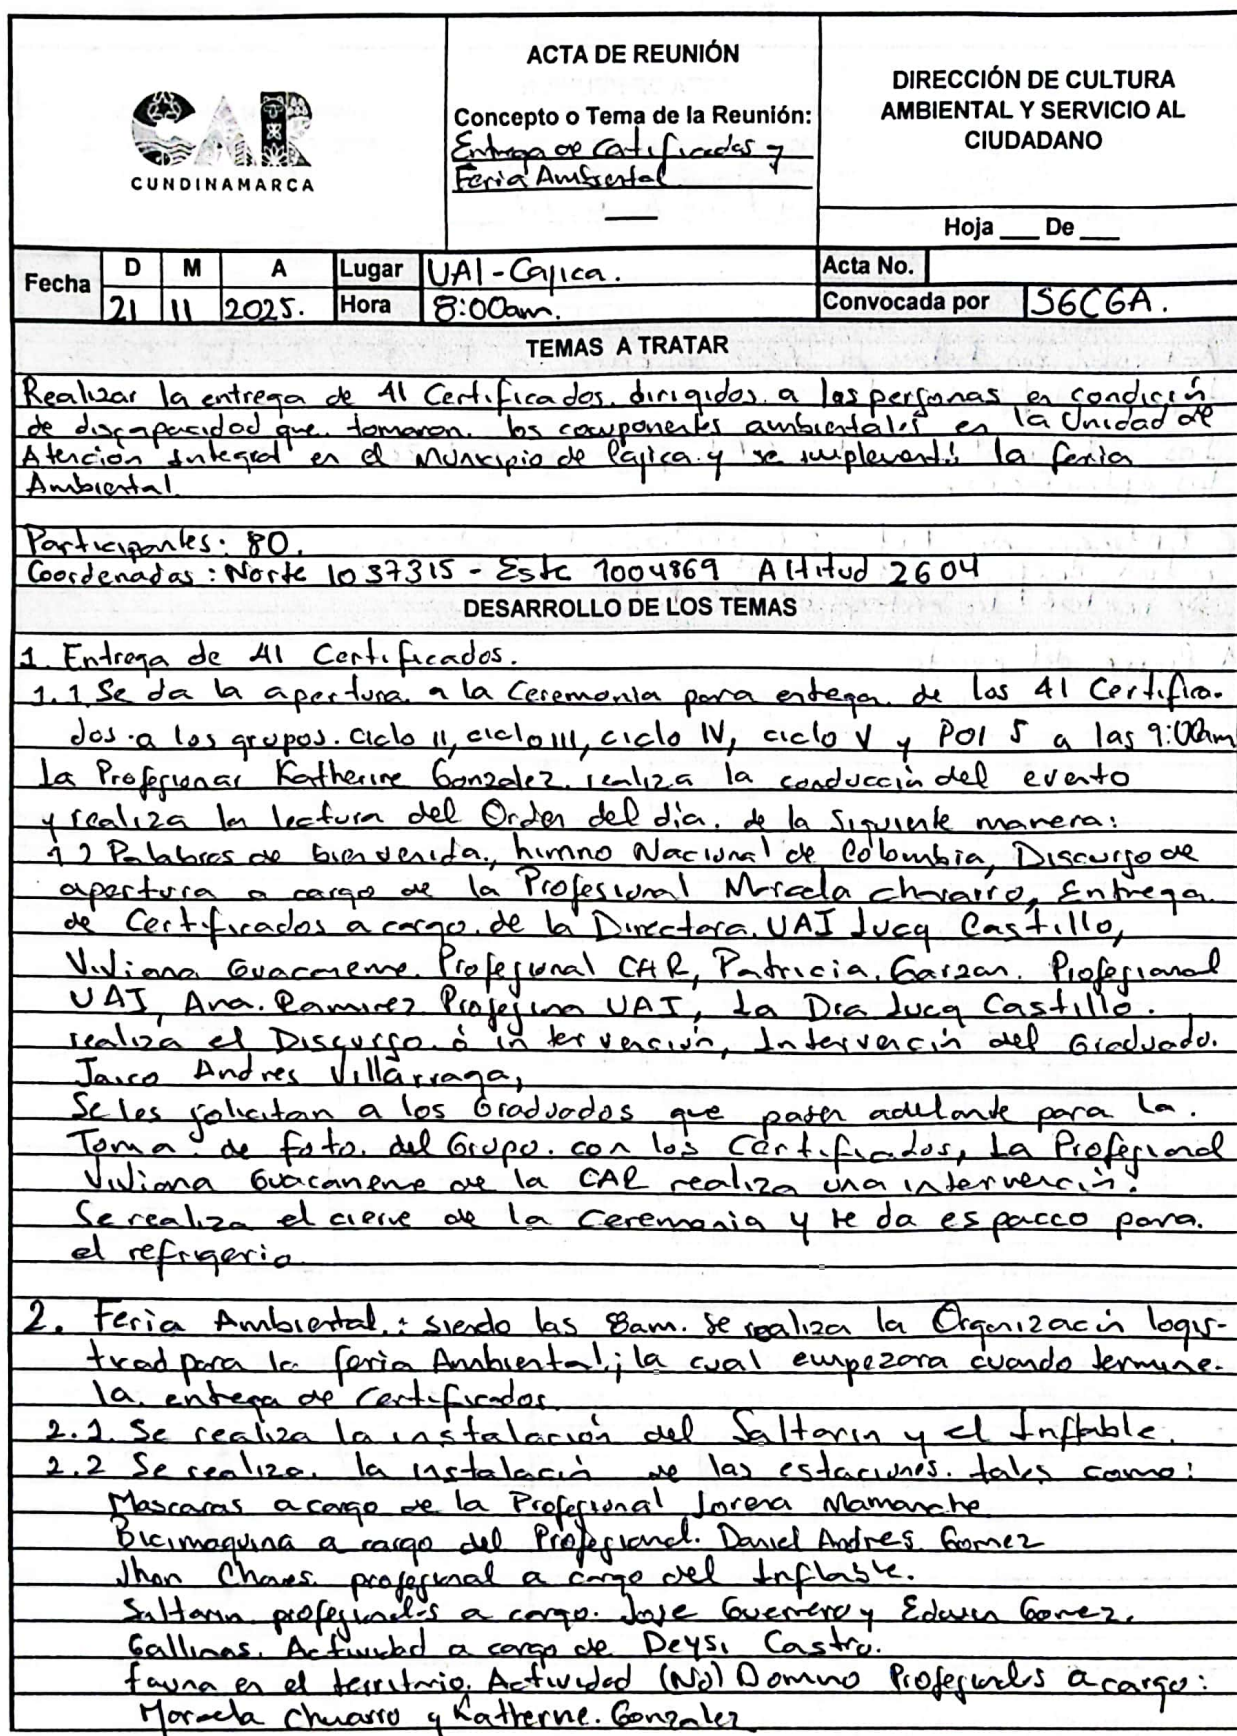 CAR
CUNDINAMARCA
ACTA DE REUNIÓN
Concepto o Tema de la Reunión:
Entrega de Certificados y
Feria Ambiental
DIRECCIÓN DE CULTURA
AMBIENTAL Y SERVICIO AL
CIUDADANO
Hoja ___ De ___
Fecha D M A Lugar UAI - Cajica. Acta No.
21 11 2025. Hora 8:00am. Convocada por SGCGA.
TEMAS A TRATAR
Realizar la entrega de 41 Certificados. dirigidos a las personas en condición
de discapacidad que tomaron los componentes ambientales en la Unidad de
Atención Integral en el Municipio de Cajica y se implementó la feria
Ambiental.
Participantes: 80.
Coordenadas: Norte 1037315 - Este 1004869 Altitud 2604
DESARROLLO DE LOS TEMAS
1. Entrega de 41 Certificados.
1.1 Se da la apertura a la Ceremonia para entega de los 41 Certifica-
dos a los grupos. ciclo II, ciclo III, ciclo IV, ciclo V y POI 5 a las 9:00am
La Profesional Katherine Gonzalez. realiza la conducción del evento
y realiza la lectura del Orden del día. de la Siguiente manera:
1.2 Palabras de bienvenida, himno Nacional de Colombia, Discurso de
apertura a cargo de la Profesional Marcela chavarro, Entrega
de Certificados a cargo de la Directora UAI Lucy Castillo,
Viviana Guacaneme Profesional CAR, Patricia Garzon. Profesional
UAI, Ana Ramirez Profesina UAI, La Dra Lucy Castillo.
realiza el Discurso ó intervención, Intervención del Graduado.
Jairo Andres Villarraga,
Se les solicitan a los Graduados que pasen adelante para la.
Toma de foto. del Grupo. con los Certificados, La Profesional
Viviana Guacaneme de la CAR realiza una intervención.
Se realiza el cierre de la Ceremonia y se da espacco para.
el refrigerio
2. Feria Ambiental.: siendo las 8am. se realiza la Organización logis-
ticad para la feria Ambiental; la cual empezara cuando termine.
la entrega de certificados.
2.1. Se realiza la instalación del Saltarin y el Inflable.
2.2 Se realiza. la instalación de las estaciones. tales como:
Mascaras a cargo de la Profesional Lorena Mamanche
Bicimaquina a cargo del Profesional. Daniel Andres Gomez
Jhon Chaves. profesional a cargo del Inflable.
Saltarin profesionales a cargo. Jose Guerrero y Edwin Gomez.
Gallinas. Actividad a cargo de Deysi Castro.
fauna en el territorio. Actividad (No) Domino Profesionales a cargo:
Marcela Chavarro y Katherine. Gonzalez